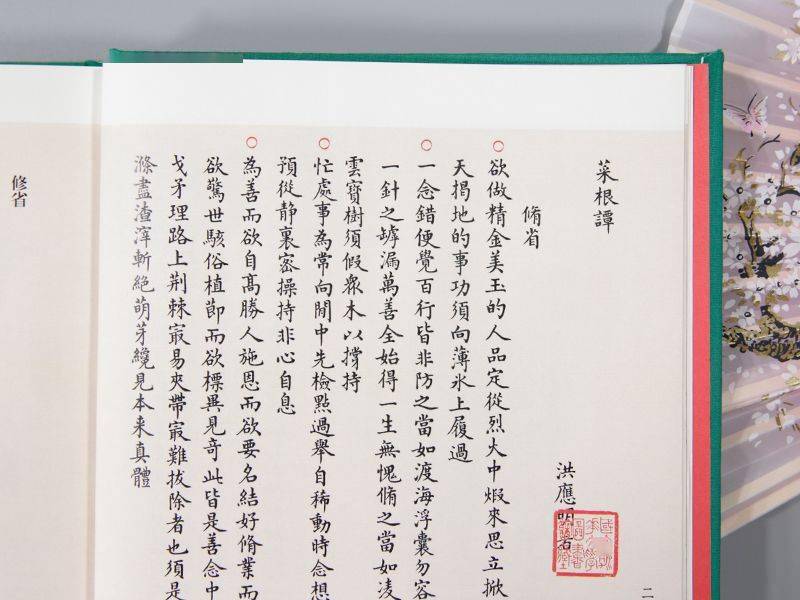 菜根譚
脩省
洪應明著
欲做精金美玉的人品定從烈火中煆來思立掀
天揭地的事功須向薄氷上履過
一念錯便覺百行皆非防之當如渡海浮囊勿容
一針之罅漏萬善全始得一生無愧脩之當如凌
雲寶樹須假衆木以撐持
忙處事為常向閒中先檢點過舉自稀動時念想
預從静裏密操持非心自息
為善而欲自髙勝人施恩而欲要名結好脩業而
欲驚世駭俗植節而欲標異見竒此皆是善念中
戈矛理路上荆棘㝡易夾帶㝡難拔除者也須是
滌盡渣滓斬絶萌芽纔見本来真體
修省
二